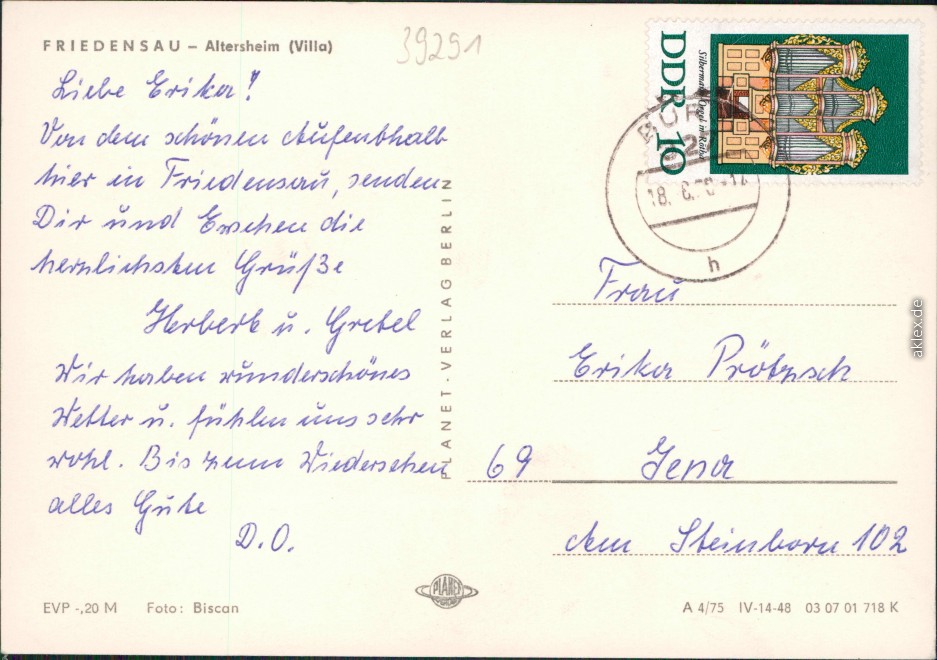 FRIEDENSAU – Altersheim (Villa)
39291
Liebe Erika!
Von dem schönen Aufenthalt
hier in Friedensau, senden
Dir und Enchen die
herzlichsten Grüße
Herbert u. Gretel
Wir haben wunderschönes
Wetter u. fühlen uns sehr
wohl. Bis zum Wiedersehen
alles Gute
D.O.
PLANET-VERLAG BERLIN
DDR 10
Silbermann-Orgel in Rötha
BUR
2
18. 6.
h
Frau
Erika Prötzsch
69 Jena
Am Steinborn 102
EVP -,20 M Foto: Biscan
PLANET
A 4/75 IV-14-48 03 07 01 718 K
aklex.de